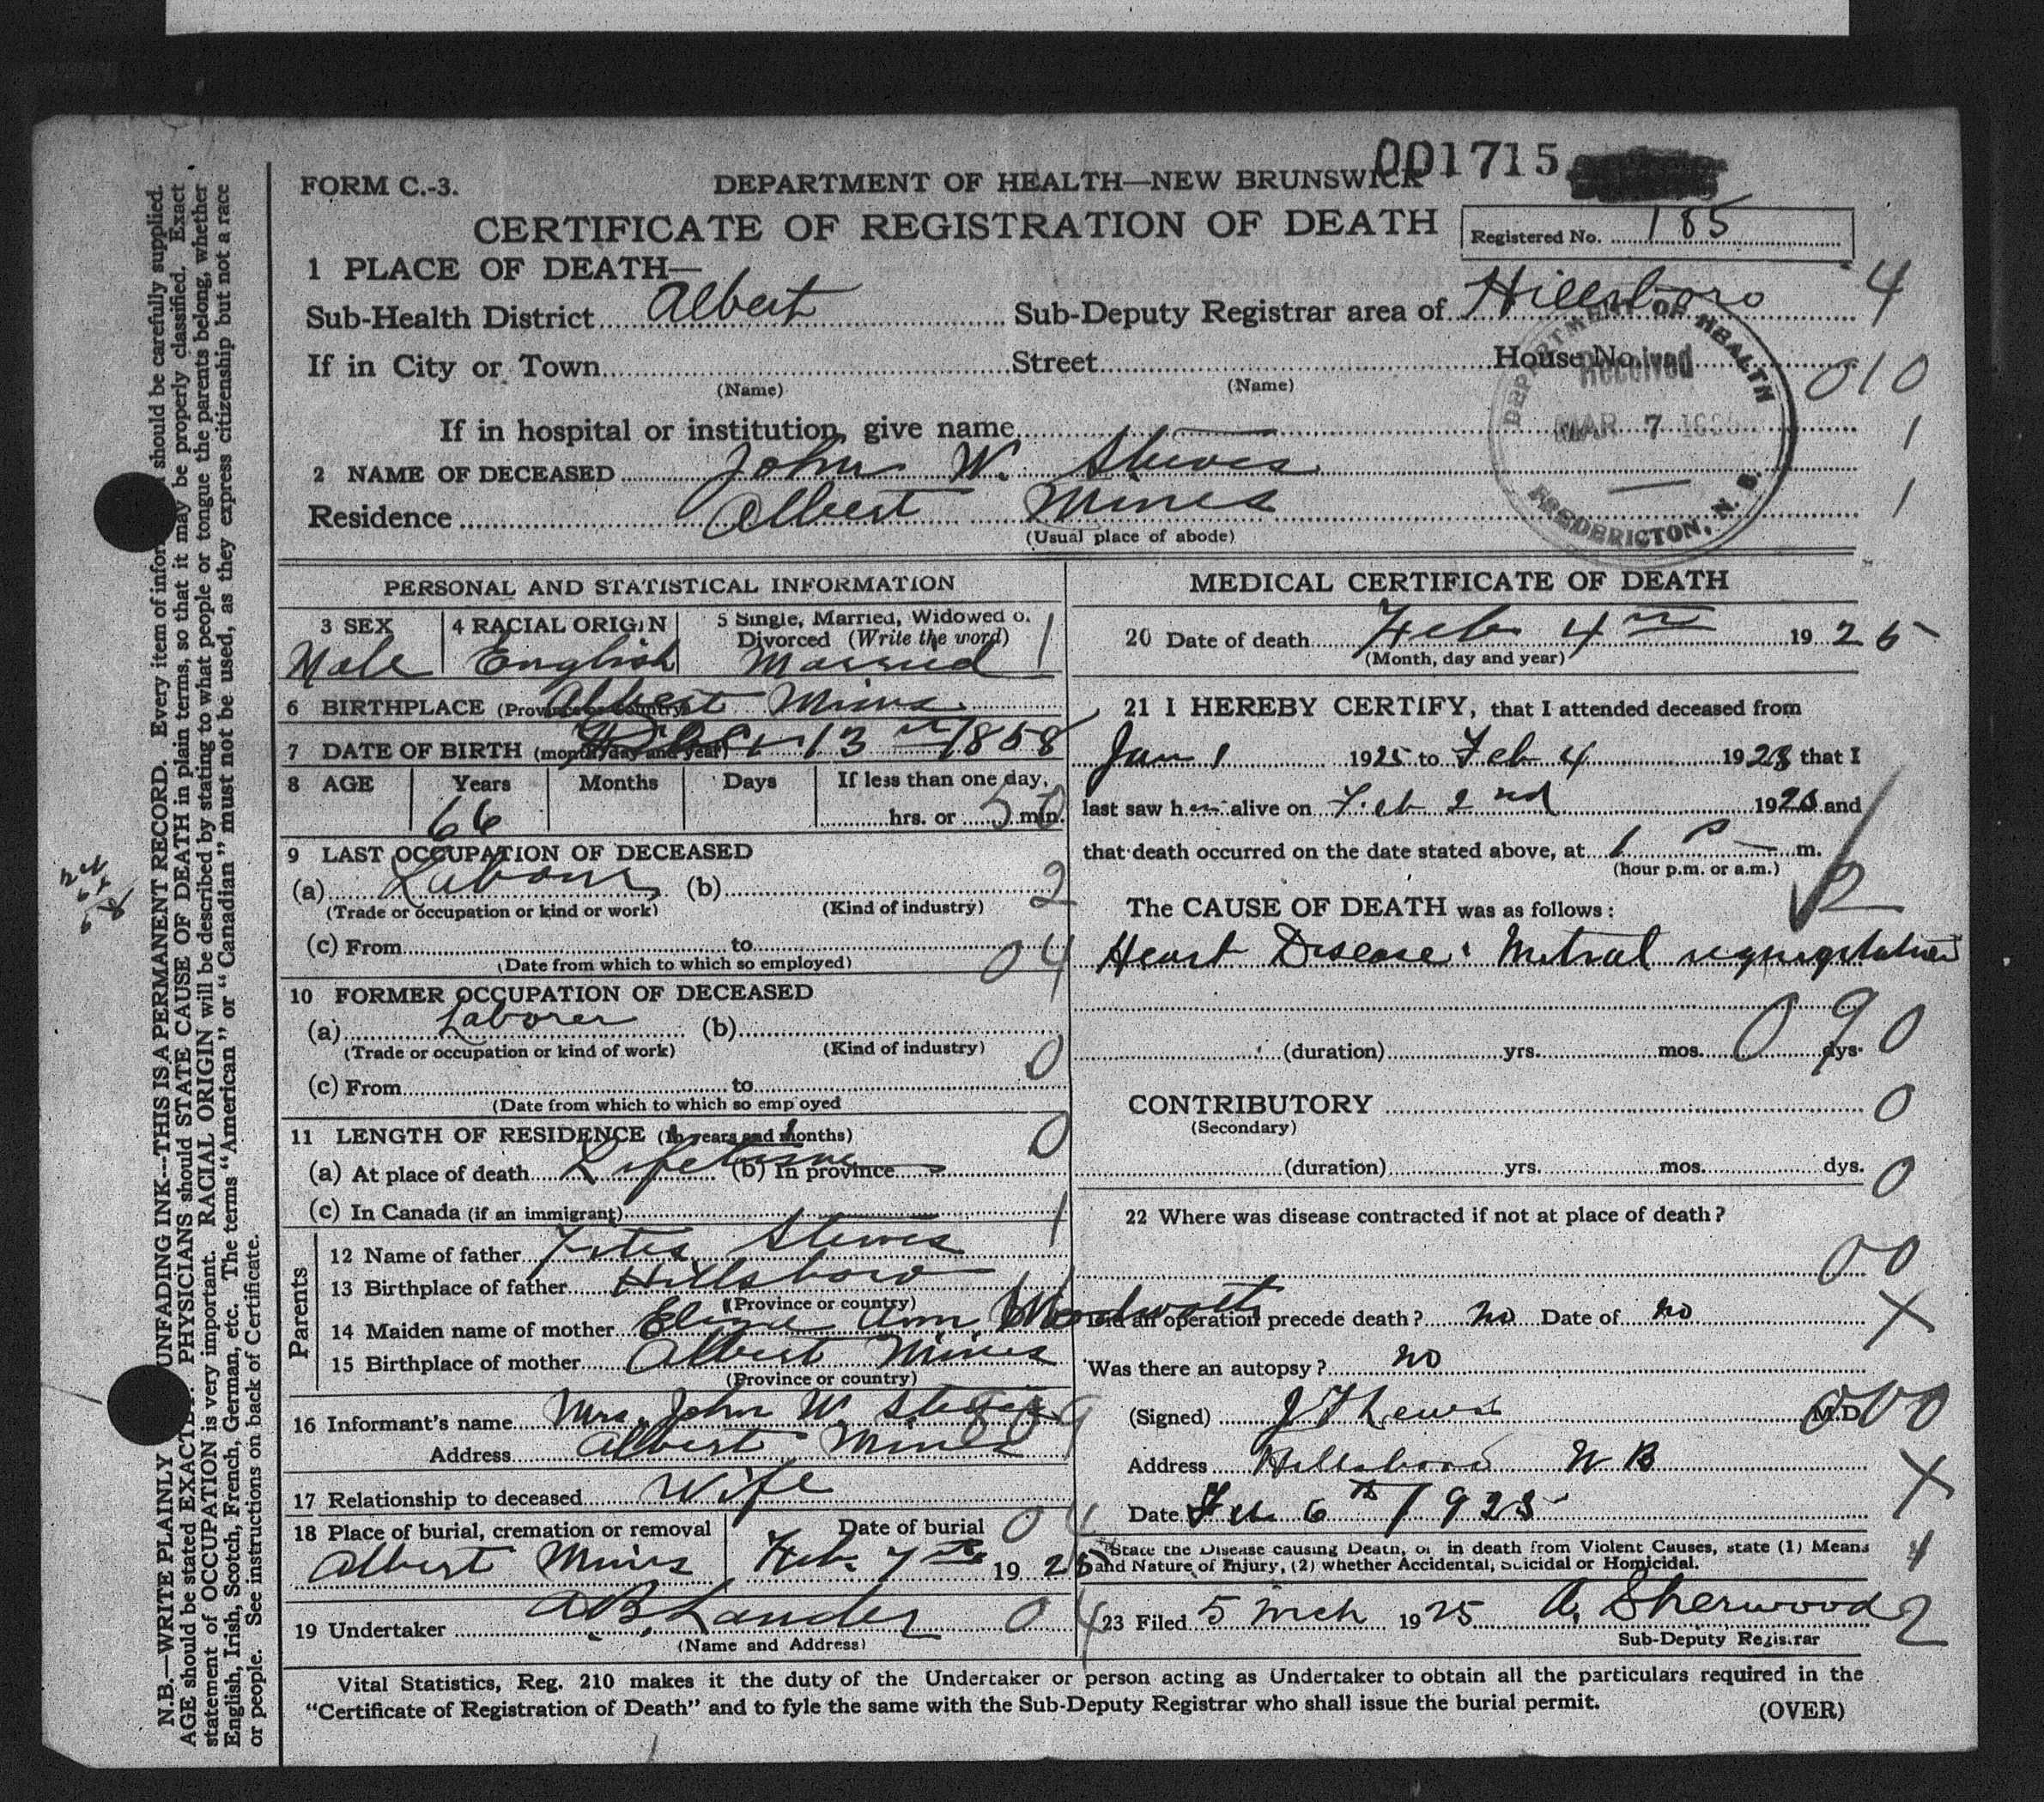 001715
FORM C.-3.
DEPARTMENT OF HEALTH—NEW BRUNSWICK
CERTIFICATE OF REGISTRATION OF DEATH
Registered No. 185
1 PLACE OF DEATH—
Sub-Health District Albert Sub-Deputy Registrar area of Hillsboro 4
If in City or Town Street House No.
(Name) (Name) 010
If in hospital or institution, give name 1
2 NAME OF DECEASED John W. Steves
Residence Albert Mines 1
(Usual place of abode)
DEPARTMENT OF HEALTH
Received
MAR 7
FREDERICTON, N. B.
PERSONAL AND STATISTICAL INFORMATION
3 SEX 4 RACIAL ORIGIN 5 Single, Married, Widowed o.
Divorced (Write the word)
Male English Married 1
6 BIRTHPLACE (Province or country) Albert Mines
7 DATE OF BIRTH (month, day and year) 13 1858
8 AGE Years Months Days If less than one day,
66 hrs. or min. 50
9 LAST OCCUPATION OF DECEASED
(a) Labour (b) 2
(Trade or occupation or kind or work) (Kind of industry)
(c) From to 04
(Date from which to which so employed)
10 FORMER OCCUPATION OF DECEASED
(a) Laborer (b)
(Trade or occupation or kind of work) (Kind of industry) 0
(c) From to
(Date from which to which so emp oyed
11 LENGTH OF RESIDENCE (In years and months) 0
(a) At place of death Lifetime (b) In province
(c) In Canada (if an immigrant) 1
Parents
12 Name of father Steves
13 Birthplace of father Hillsboro
(Province or country)
14 Maiden name of mother Eliza Ann Woodworth
15 Birthplace of mother Albert Mines
(Province or country)
16 Informant's name Mrs. John W. Steves
Address Albert Mines
17 Relationship to deceased Wife
18 Place of burial, cremation or removal Date of burial 04
Albert Mines Feb. 7th 1925
19 Undertaker A B Lander 04
(Name and Address)
MEDICAL CERTIFICATE OF DEATH
20 Date of death Feb 4th 1925
(Month, day and year)
21 I HEREBY CERTIFY, that I attended deceased from
Jan 1 1925 to Feb 4 1925 that I
last saw h alive on Feb 2nd 1925 and
that death occurred on the date stated above, at 1 P m.
(hour p.m. or a.m.)
2
The CAUSE OF DEATH was as follows:
Heart Disease: Mitral regurgitation
090
(duration) yrs. mos. dys.
CONTRIBUTORY 0
(Secondary)
(duration) yrs. mos. dys. 0
22 Where was disease contracted if not at place of death?
00
Did an operation precede death? no Date of no X
Was there an autopsy? no
(Signed) J T Lewis M.D. 000
Address Hillsboro N B X
Date Feb 6th 1925
State the Disease causing Death, or in death from Violent Causes, state (1) Means 4
and Nature of Injury, (2) whether Accidental, Suicidal or Homicidal.
23 Filed 5 Mch 1925 A. Sherwood 2
Sub-Deputy Registrar
Vital Statistics, Reg. 210 makes it the duty of the Undertaker or person acting as Undertaker to obtain all the particulars required in the
"Certificate of Registration of Death" and to fyle the same with the Sub-Deputy Registrar who shall issue the burial permit. (OVER)
N.B.—WRITE PLAINLY UNFADING INK—THIS IS A PERMANENT RECORD. Every item of infor should be carefully supplied.
AGE should be stated EXACTLY. PHYSICIANS should STATE CAUSE OF DEATH in plain terms, so that it may be properly classified. Exact
statement of OCCUPATION is very important. RACIAL ORIGIN will be described by stating to what people or tongue the parents belong, whether
English, Irish, Scotch, French, German, etc. The terms "American" or "Canadian" must not be used, as they express citizenship but not a race
or people. See instructions on back of Certificate.